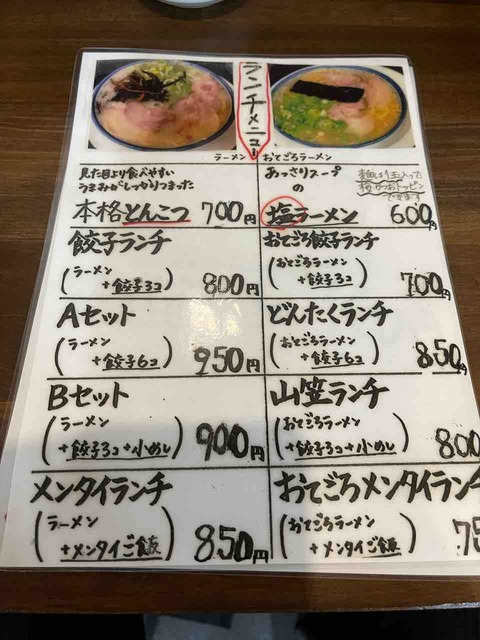 ランチメニュー
ラーメン
見た目より食べやすい
うまみがしっかりつまった
本格とんこつ 700円
餃子ランチ
(ラーメン
+餃子3コ) 800円
Aセット
(ラーメン
+餃子6コ) 950円
Bセット
(ラーメン
+餃子3コ+小めし) 900円
メンタイランチ
(ラーメン
+メンタイご飯) 850円
おてごろラーメン
あっさりスープ
の
塩ラーメン 600円
おてごろ餃子ランチ
(おてごろラーメン
+餃子3コ) 700円
どんたくランチ
(おてごろラーメン
+餃子6コ) 850円
山笠ランチ
(おてごろラーメン
+餃子3コ+小めし) 800
おてごろメンタイランチ
(おてごろラーメン
+メンタイご飯) 75